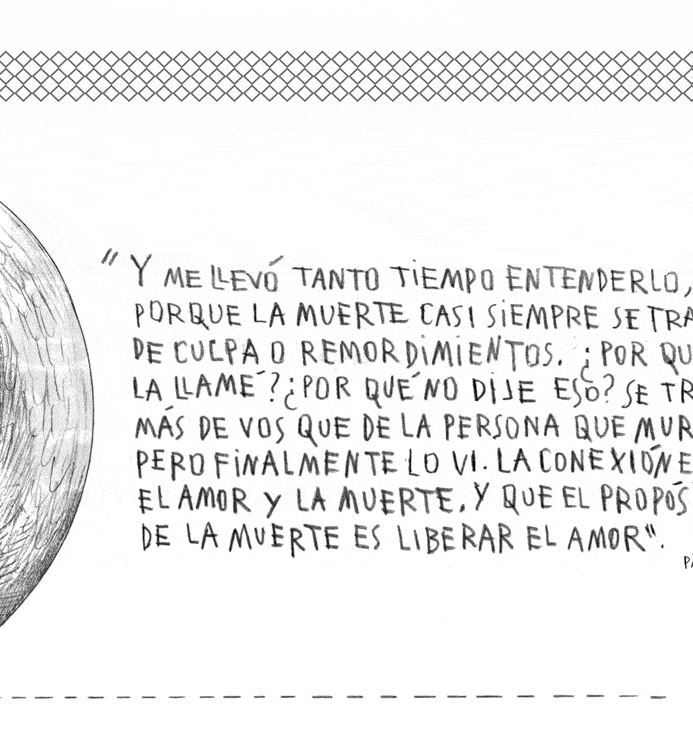 "Y ME LLEVÓ TANTO TIEMPO ENTENDERLO,
PORQUE LA MUERTE CASI SIEMPRE SE TRA
DE CULPA O REMORDIMIENTOS. ¿POR QU
LA LLAMÉ? ¿POR QUÉ NO DIJE ESO? SE TR
MÁS DE VOS QUE DE LA PERSONA QUE MUR
PERO FINALMENTE LO VI. LA CONEXIÓN E
EL AMOR Y LA MUERTE. Y QUE EL PROPÓS
DE LA MUERTE ES LIBERAR EL AMOR".